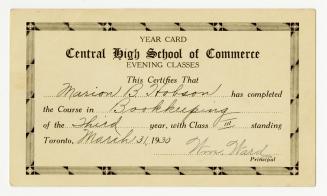 YEAR CARD
Central High School of Commerce
EVENING CLASSES
This Certifies That
Marion B. Hobson has completed
the Course in Bookkeeping
of the Third year, with Class III standing
Toronto, March 31, 1930
Wm. Ward
Principal